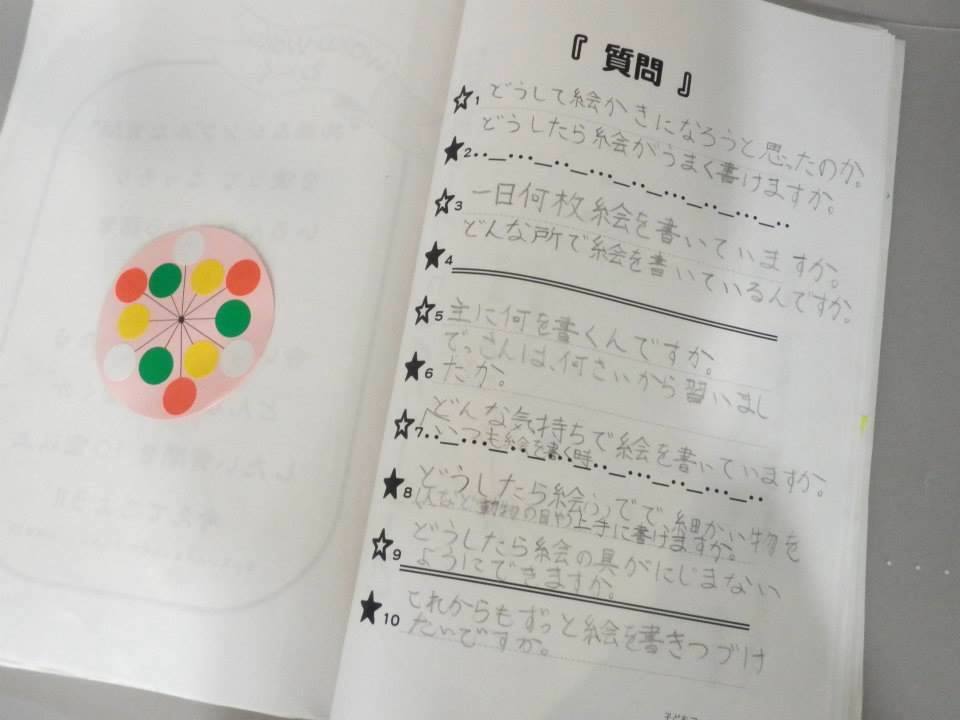 『 質問 』
☆1 どうして絵かきになろうと思ったのか。
★2 どうしたら絵がうまく書けますか。
☆3 一日何枚絵を書いていますか。
★4 どんな所で絵を書いているんですか。
☆5 主に何を書くんですか。
★6 でっさんは、何さいから習いまし
たか。
☆7 どんな気持ちで絵を書いていますか。
いつも絵を書く時
★8 どうしたら絵ふででで細かい物を
(人など動物の目や)上手に書けますか。
☆9 どうしたら絵の具がにじまない
ようにできますか。
★10 これからもずっと絵を書きつづけ
たいですか。